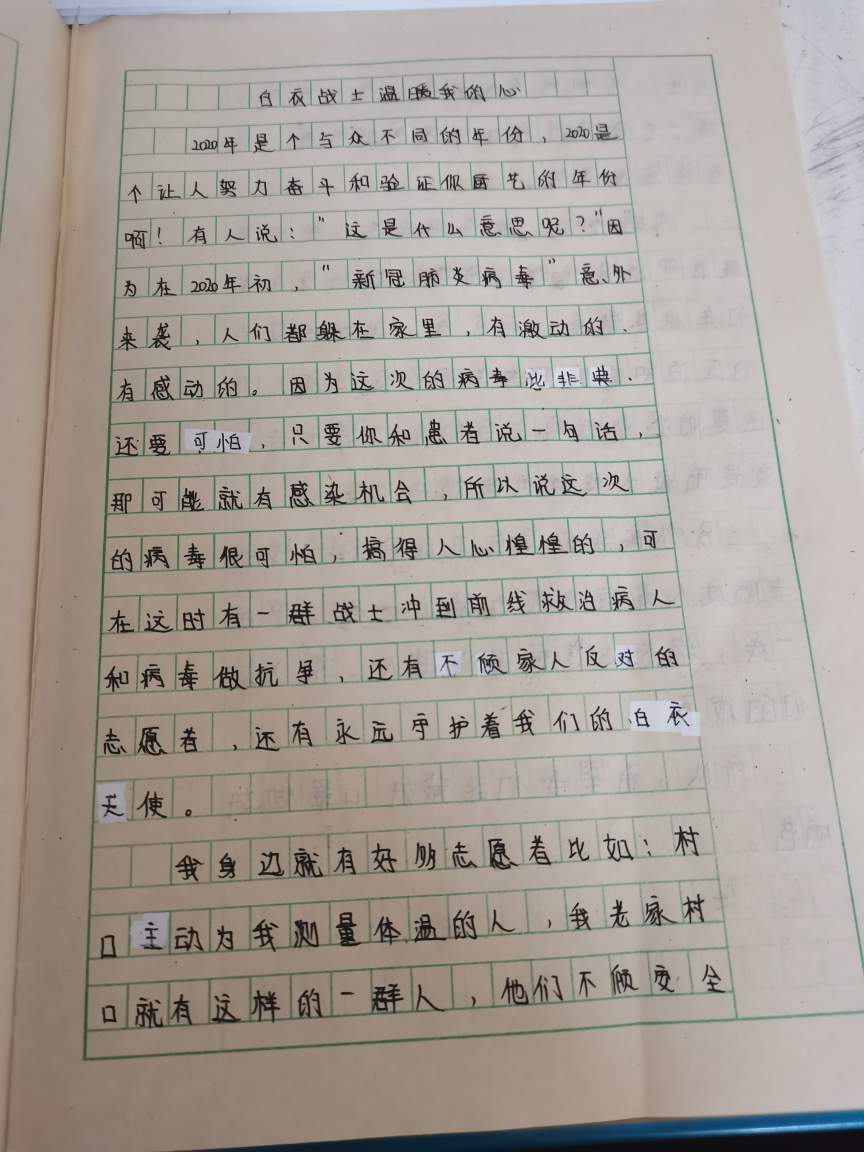 白衣战士温暖我的心
2020年是个与众不同的年份，2020是
个让人努力奋斗和验证你厨艺的年份
啊！有人说："这是什么意思呢？"因
为在2020年初，"新冠肺炎病毒"意外
来袭，人们都躲在家里，有激动的.
有感动的。因为这次的病毒比非典.
还要可怕，只要你和患者说一句话，
那可能就有感染机会，所以说这次
的病毒很可怕，搞得人心惶惶的，可
在这时有一群战士冲到前线救治病人
和病毒做抗争，还有不顾家人反对的
志愿者，还有永远守护着我们的白衣
天使。
我身边就有好多志愿者比如：村
口主动为我测量体温的人，我老家村
口就有这样的一群人，他们不顾安全